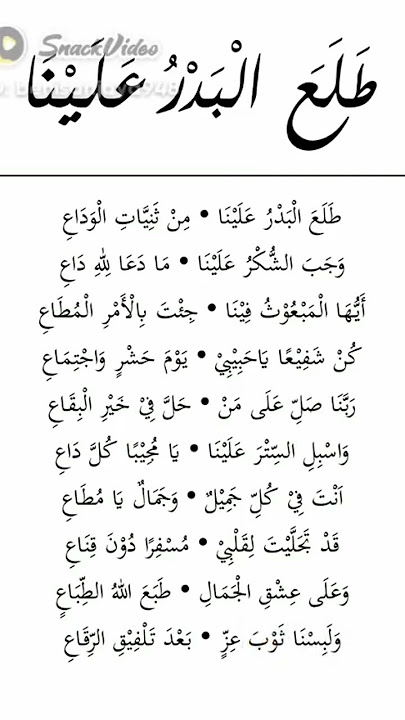 SnackVideo
طَلَعَ الْبَدْرُ عَلَيْنَا
طَلَعَ الْبَدْرُ عَلَيْنَا • مِنْ ثَنِيَّاتِ الْوَدَاعِ
وَجَبَ الشُّكْرُ عَلَيْنَا • مَا دَعَا لِلّٰهِ دَاعِ
أَيُّهَا الْمَبْعُوْثُ فِيْنَا • جِئْتَ بِالْأَمْرِ الْمُطَاعِ
كُنْ شَفِيْعًا يَاحَبِيْبِيْ • يَوْمَ حَشْرٍ وَاجْتِمَاعِ
رَبَّنَا صَلِّ عَلَى مَنْ • حَلَّ فِيْ خَيْرِ الْبِقَاعِ
وَاسْبِلِ السِّتْرَ عَلَيْنَا • يَا مُجِيْبًا كُلَّ دَاعِ
اَنْتَ فِيْ كُلِّ جَمِيْلٌ • وَجَمَالٌ يَا مُطَاعِ
قَدْ تَجَلَّيْتَ لِقَلْبِيْ • مُسْفِرًا دُوْنَ قِنَاعِ
وَعَلَى عِشْقِ الْجَمَالِ • طَبَعَ اللهُ الطِّبَاعِ
وَلَبِسْنَا ثَوْبَ عِزٍّ • بَعْدَ تَلْفِيْقِ الرِّقَاعِ